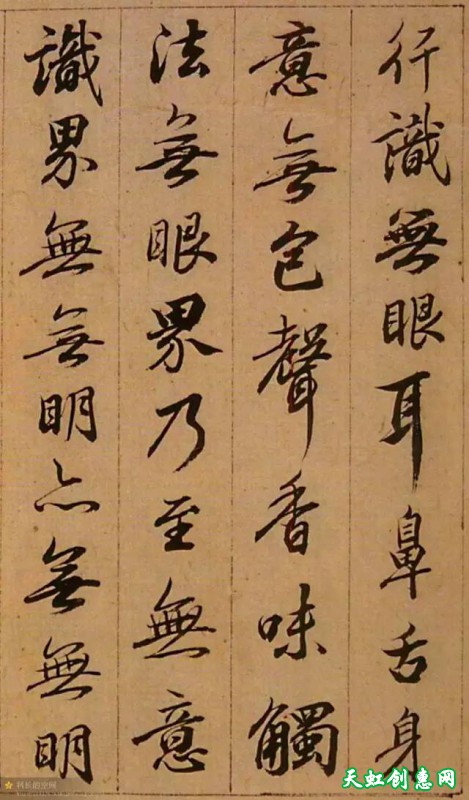 行識無眼耳鼻舌身
意無色聲香味觸
法無眼界乃至無意
識界無無明亦無無明
天虹创惠网